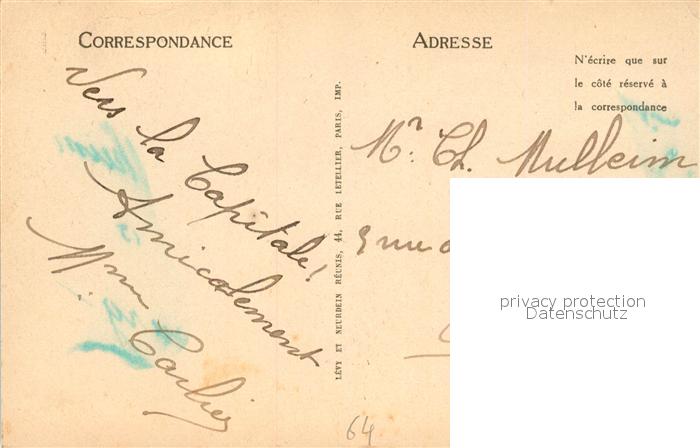 CORRESPONDANCE
Vers la Capitale!
Amicalement
Mme Carlier
LÉVY ET NEURDEIN RÉUNIS, 44, RUE LETELLIER, PARIS, IMP.
ADRESSE
N'écrire que sur
le côté réservé à
la correspondance
Mr. Ch. Mulleim
rue
privacy protection
Datenschutz
64